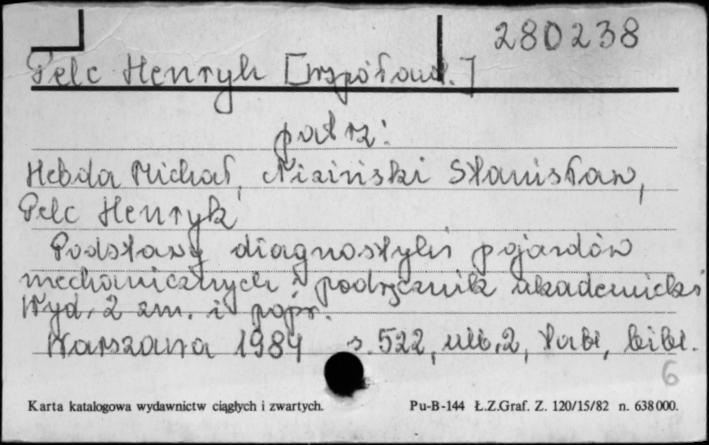 280238
Pelc Henryk [współaut.]
patrz:
Hebda Michał, Niziński Stanisław,
Pelc Henryk
Podstawy diagnostyki pojazdów
mechanicznych : podręcznik akademicki
Wyd. 2 zm. i popr.
Warszawa 1984 s. 522, nlb. 2, tabl, bibl.
6
Karta katalogowa wydawnictw ciągłych i zwartych. Pu-B-144 Ł.Z.Graf. Z. 120/15/82 n. 638000.